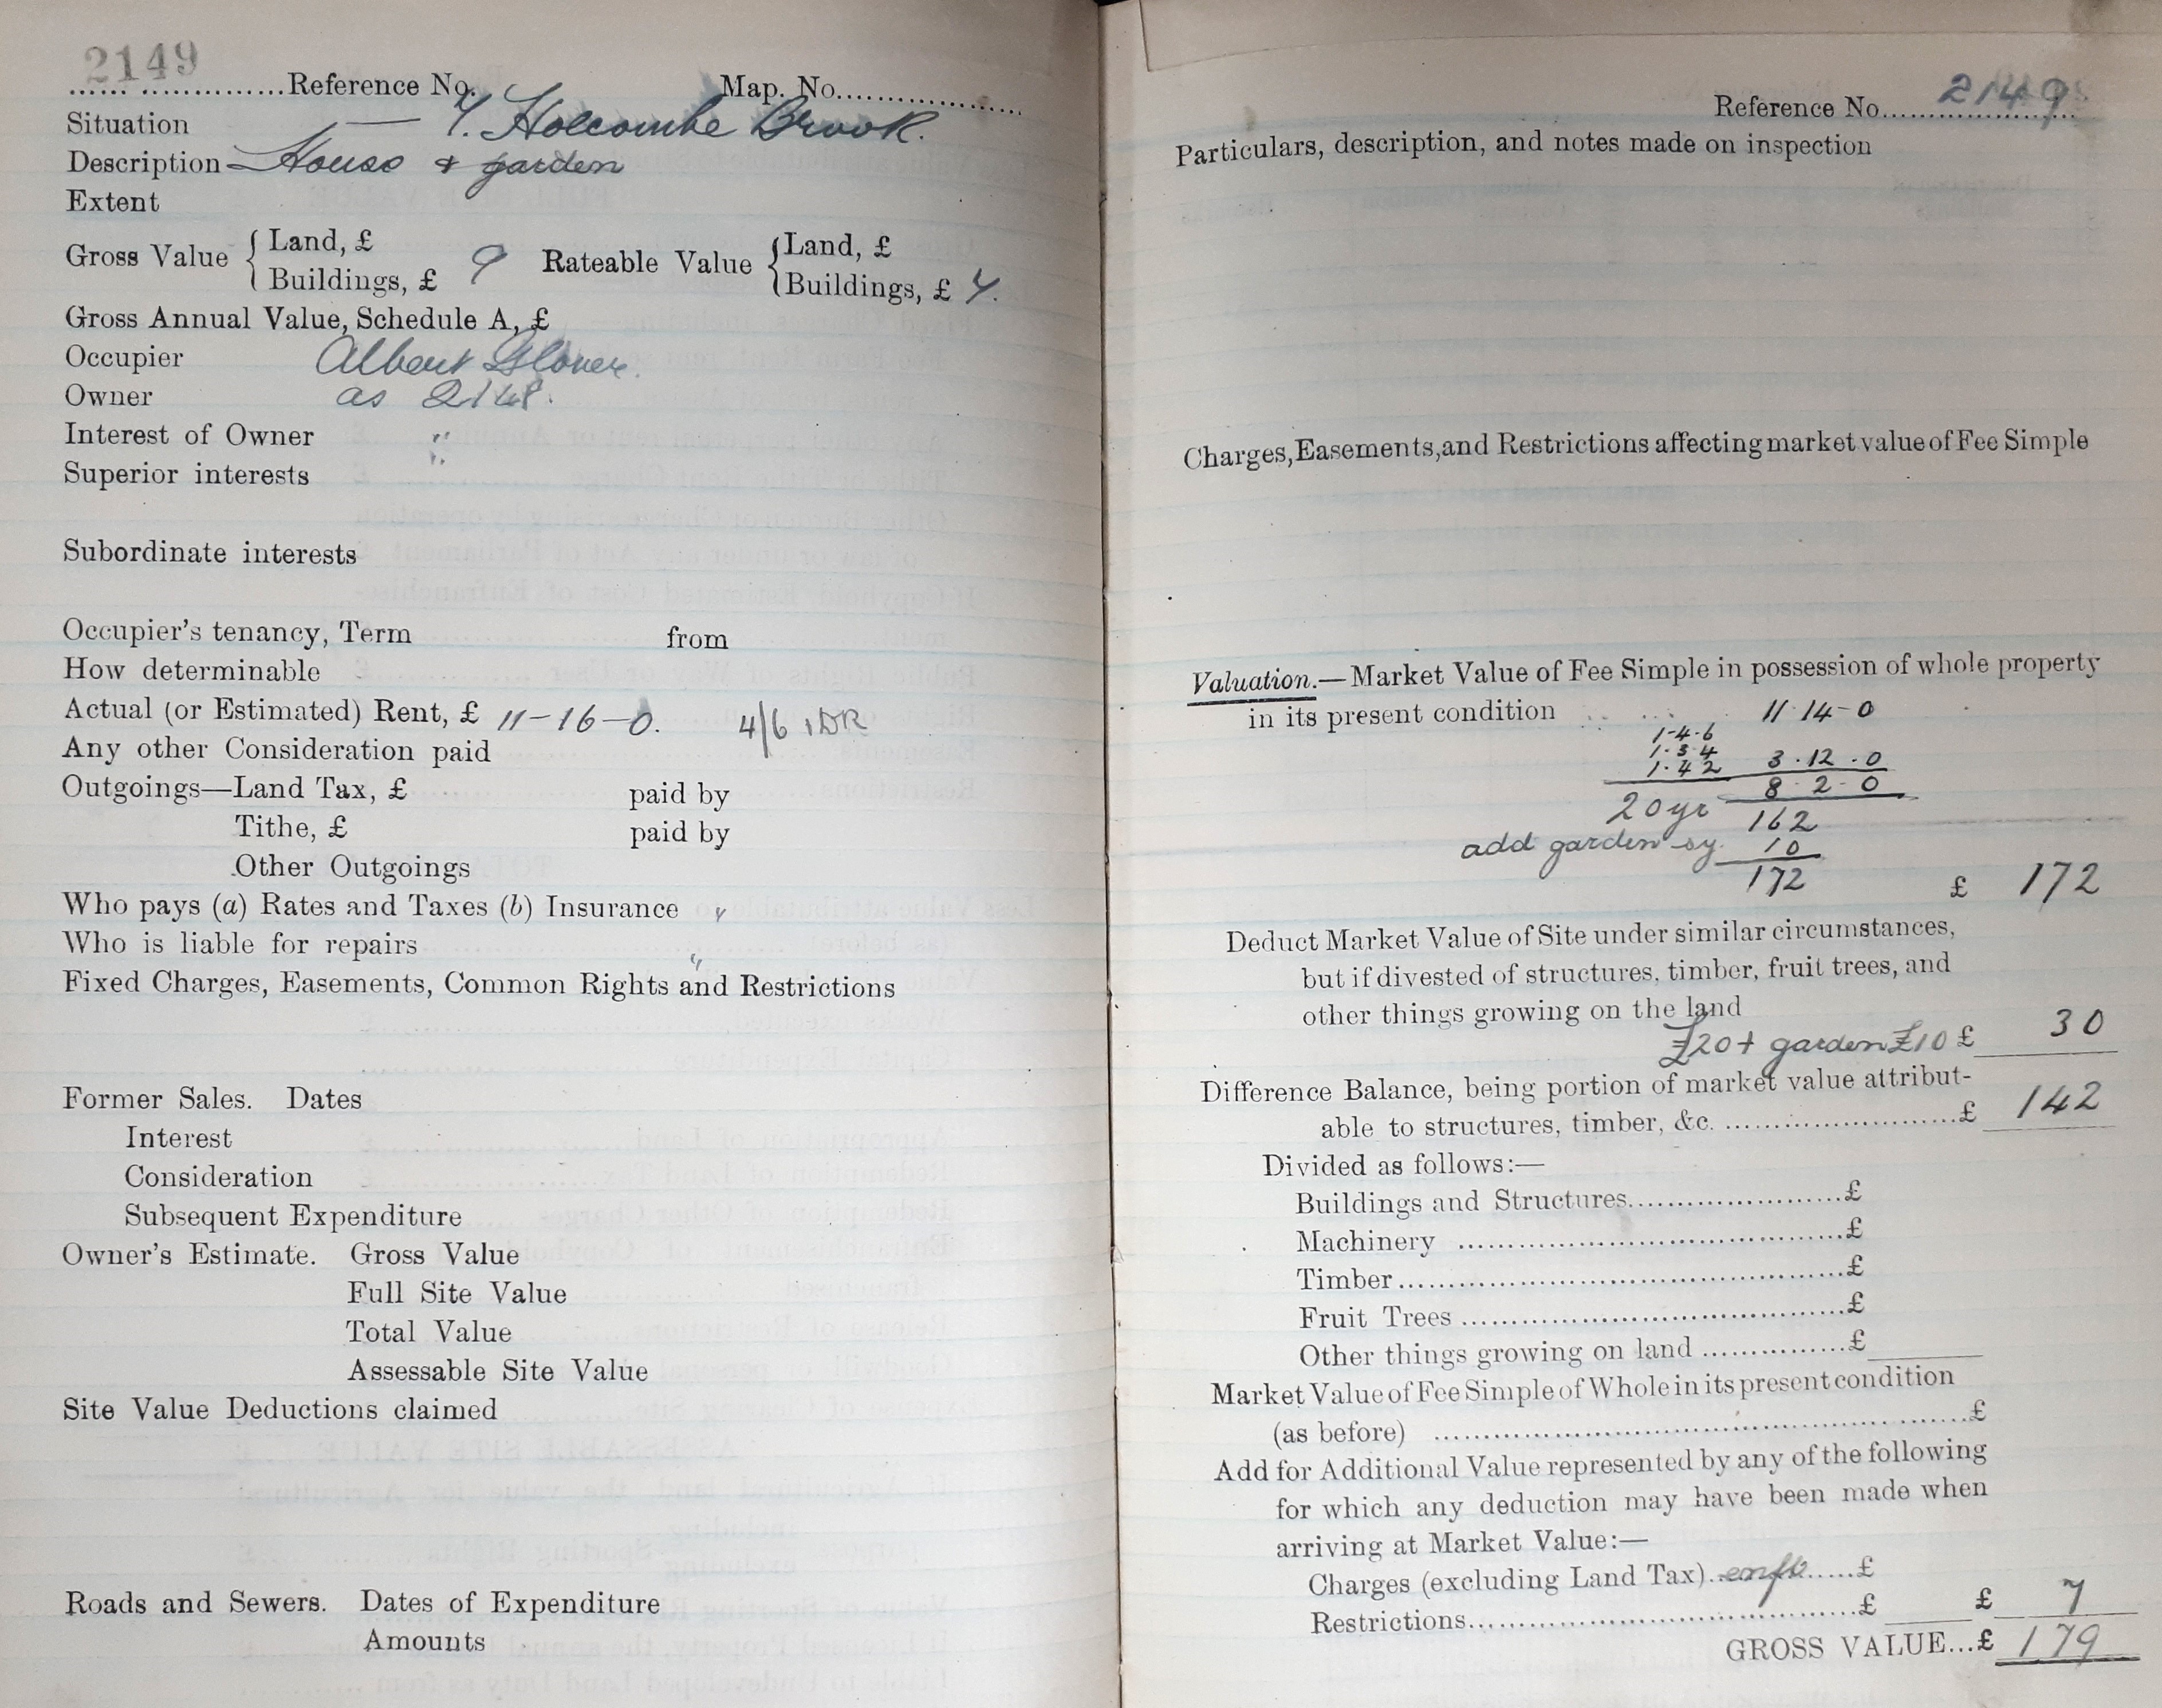 2149
Reference No. Map. No.
Situation — 7. Holcombe Brook.
Description House & garden
Extent
Gross Value { Land, £
Buildings, £ 9 Rateable Value { Land, £
Buildings, £ 7.
Gross Annual Value, Schedule A, £
Occupier Albert Glover.
Owner as 2148.
Interest of Owner "
Superior interests "
Subordinate interests
Occupier's tenancy, Term from
How determinable
Actual (or Estimated) Rent, £ 11-16-0. 4/6 LDR
Any other Consideration paid
Outgoings—Land Tax, £ paid by
Tithe, £ paid by
Other Outgoings
Who pays (a) Rates and Taxes (b) Insurance "
Who is liable for repairs "
Fixed Charges, Easements, Common Rights and Restrictions
Former Sales. Dates
Interest
Consideration
Subsequent Expenditure
Owner's Estimate. Gross Value
Full Site Value
Total Value
Assessable Site Value
Site Value Deductions claimed
Roads and Sewers. Dates of Expenditure
Amounts
Reference No. 2149
Particulars, description, and notes made on inspection
Charges, Easements, and Restrictions affecting market value of Fee Simple
Valuation.—Market Value of Fee Simple in possession of whole property
in its present condition 11-14-0
1-4-6
1-3-4
1-4-2 3-12-0
8-2-0
20 yr 162
add garden sy. 10
172 £ 172
Deduct Market Value of Site under similar circumstances,
but if divested of structures, timber, fruit trees, and
other things growing on the land
£20 + garden £10 £ 30
Difference Balance, being portion of market value attribut-
able to structures, timber, &c. £ 142
Divided as follows:—
Buildings and Structures £
Machinery £
Timber £
Fruit Trees £
Other things growing on land £
Market Value of Fee Simple of Whole in its present condition
(as before) £
Add for Additional Value represented by any of the following
for which any deduction may have been made when
arriving at Market Value:—
Charges (excluding Land Tax) £
Restrictions £ £ 7
GROSS VALUE...£ 179